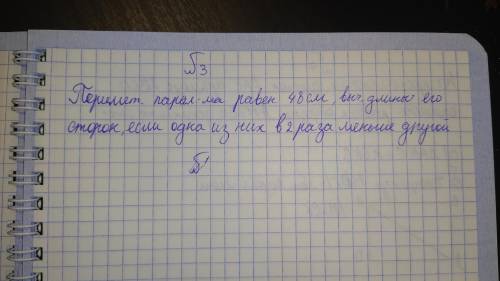 Б3
Перимет. парал-ма равен 48 см, выч. длины его
сторон, если одна из них в 2 раза меньше другой